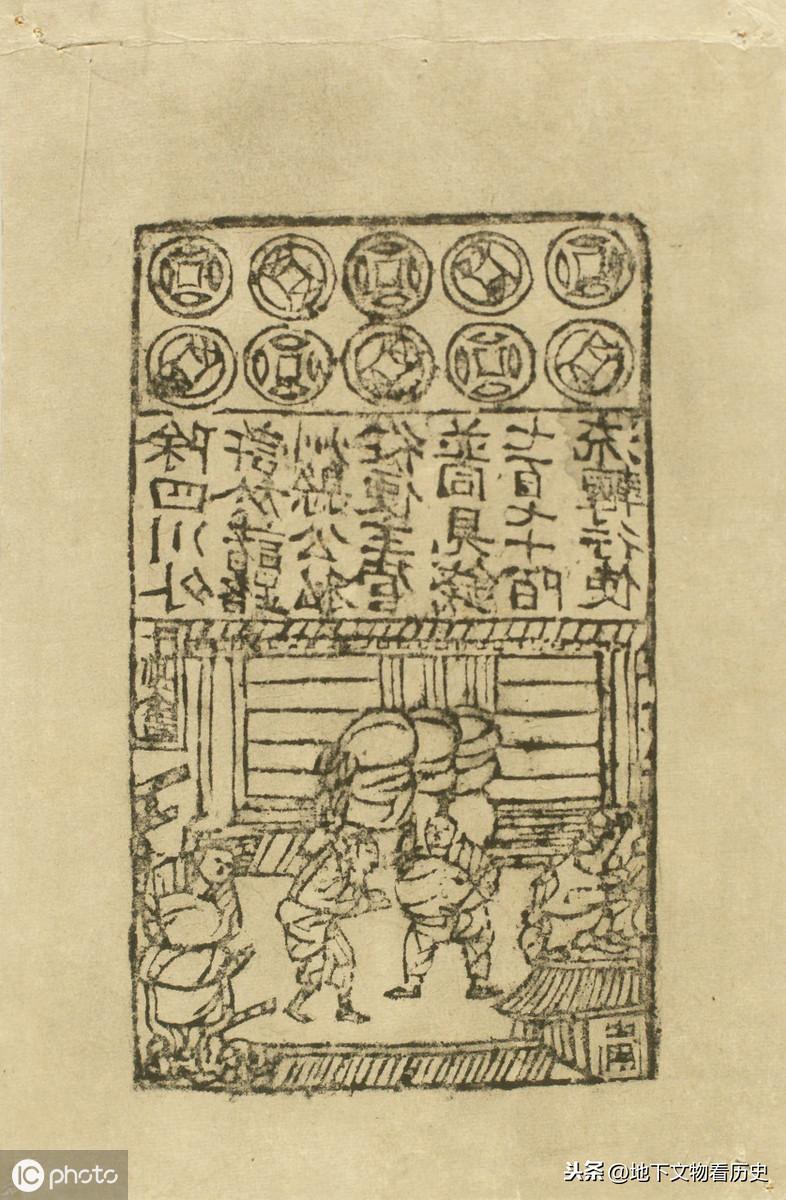 除四川外
許於諸路
州縣公私
從便主管
並同見錢
七百七十陌
流轉行使
IC photo
头条 @地下文物看历史